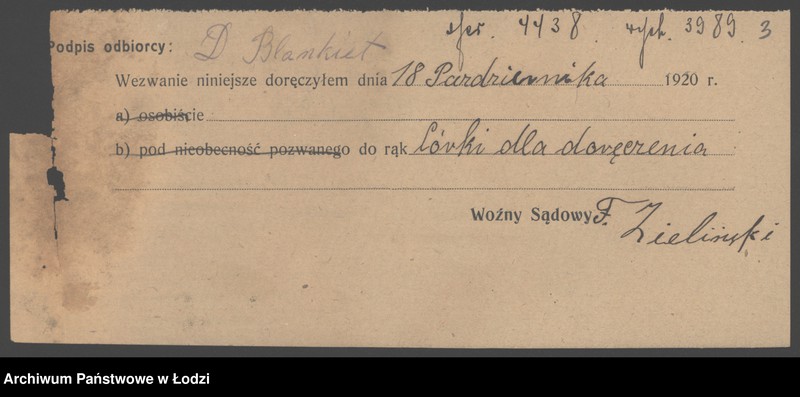 sfer. 4438. rych. 3989. 3
Podpis odbiorcy: D Blankiet
Wezwanie niniejsze doręczyłem dnia 18 Pazdziernika 1920 r.
a) osobiście
b) pod nieobecność pozwanego do rąk Córki dla doręczenia
Woźny Sądowy F. Zieliński
Archiwum Państwowe w Łodzi